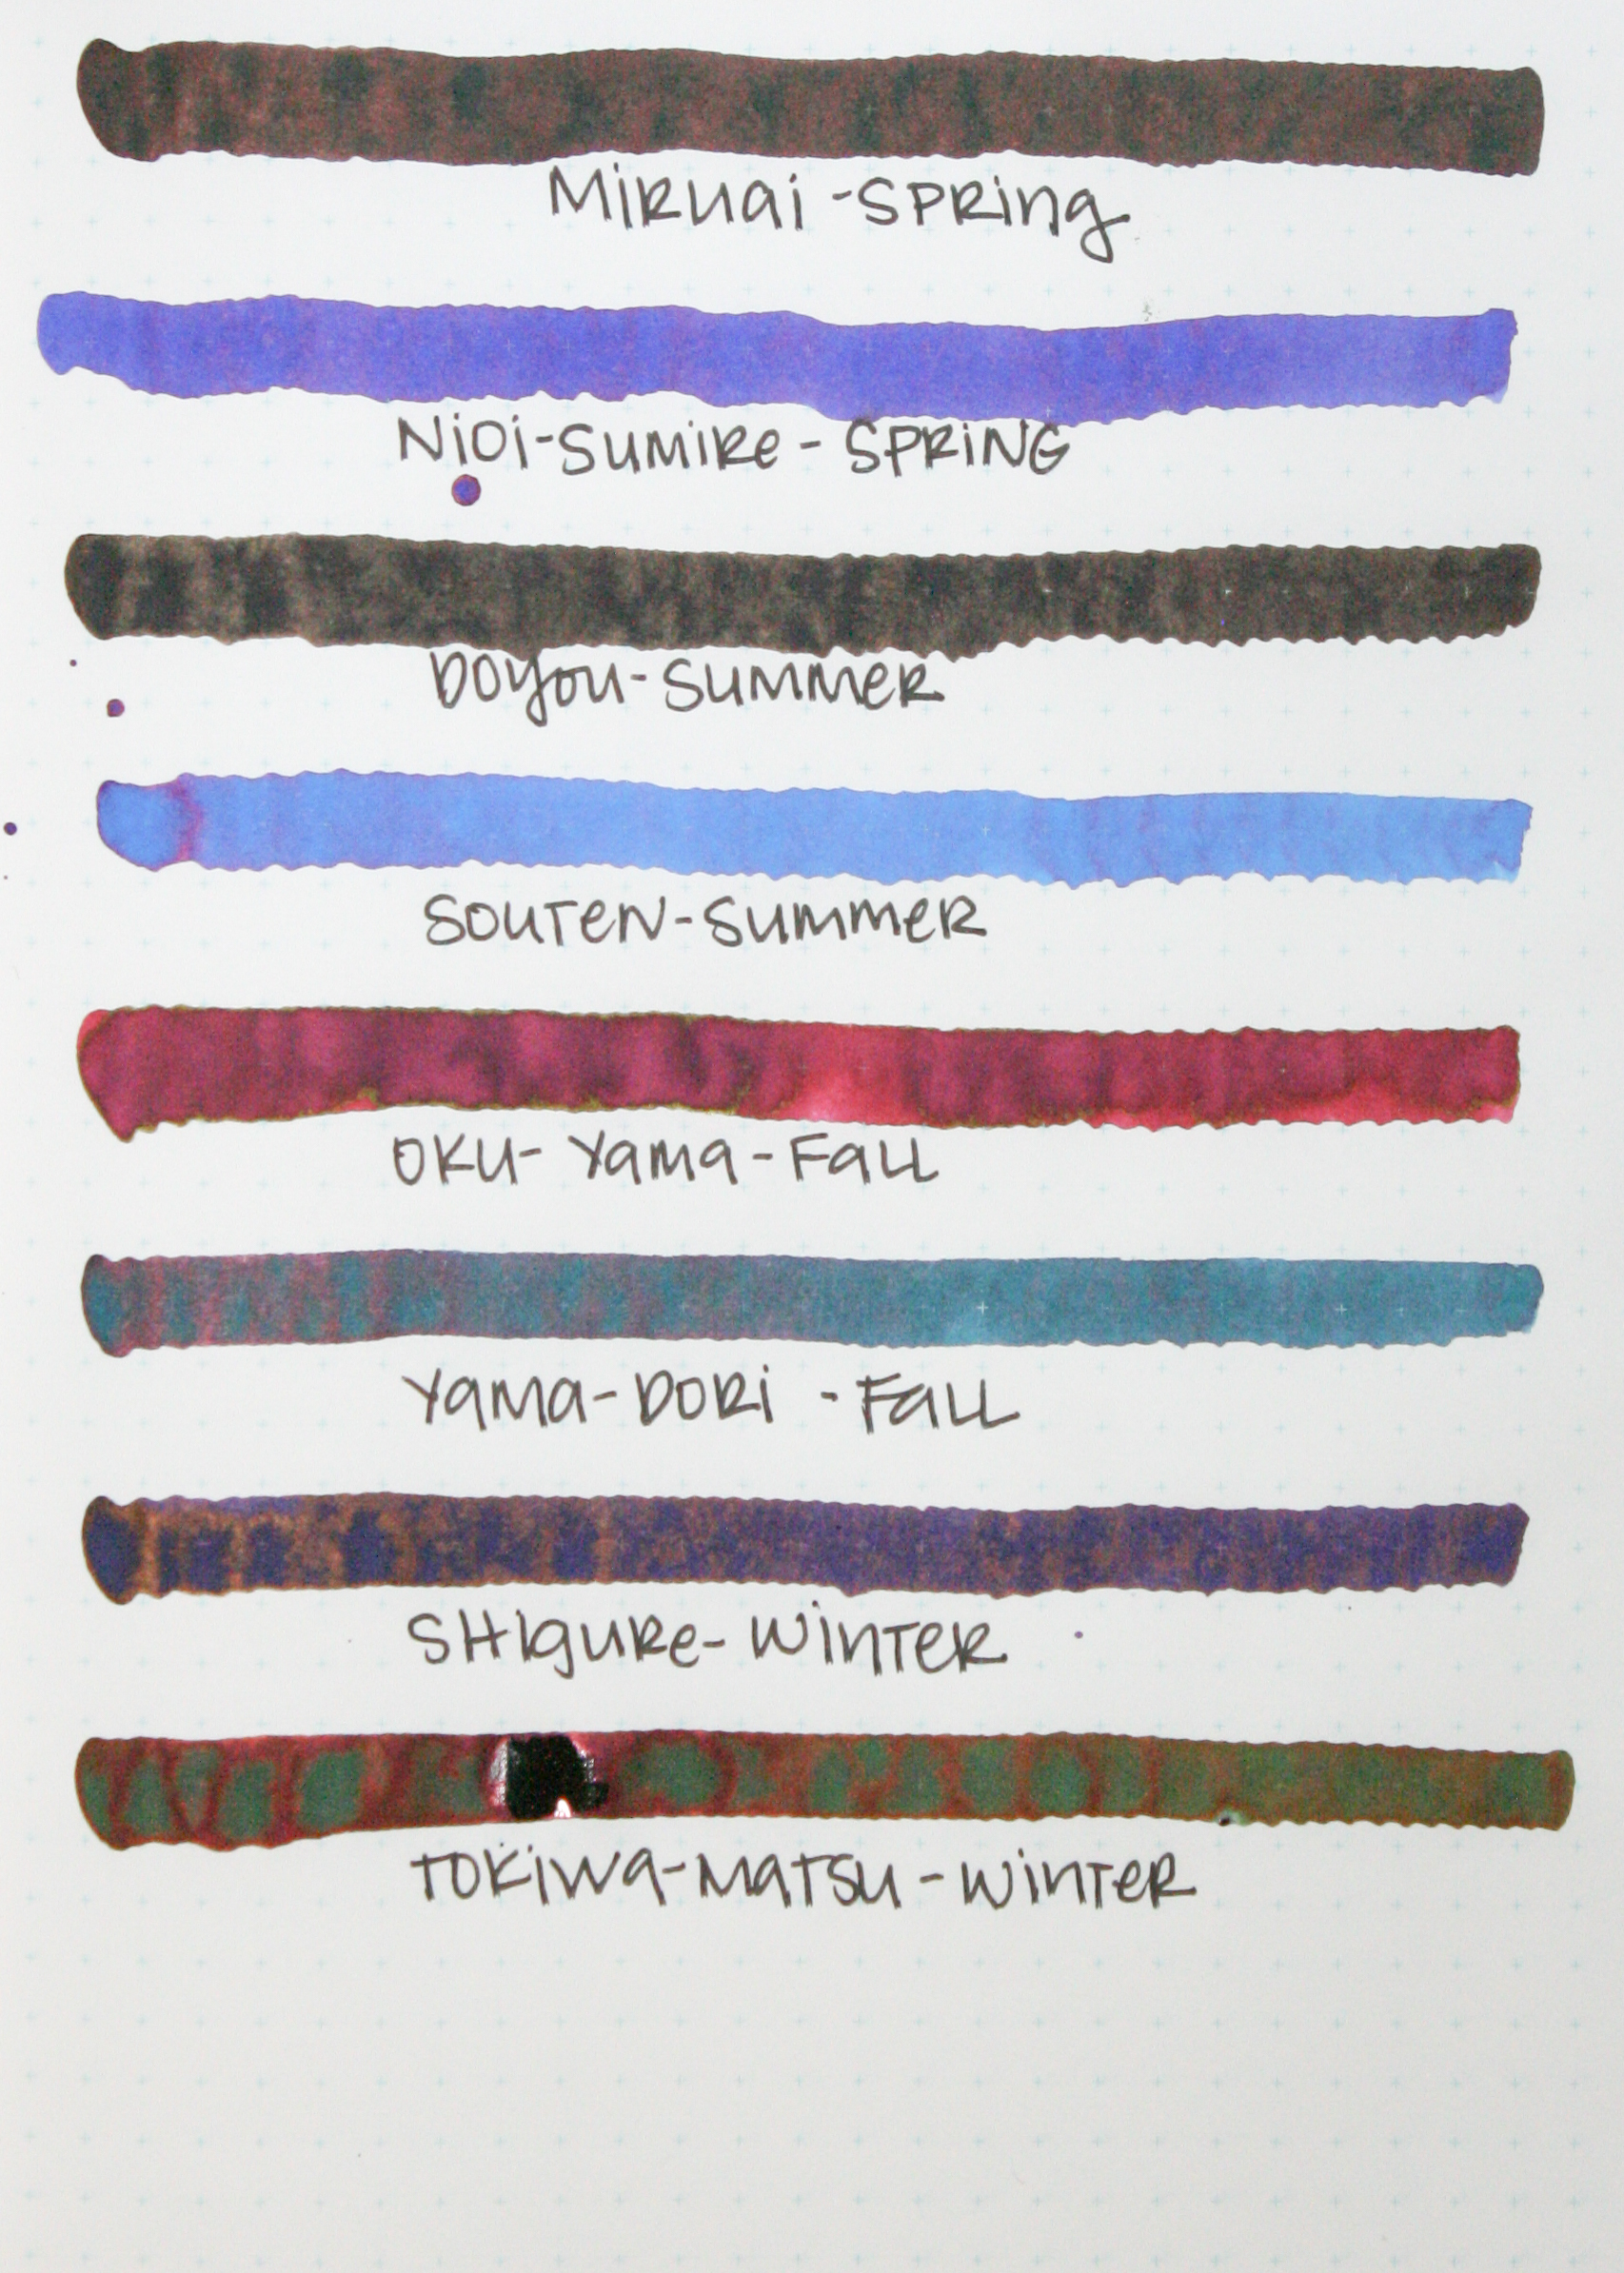 Miruai - Spring
Nioi-Sumire - Spring
Doyou - Summer
Souten - Summer
Oku-Yama - Fall
Yama-Dori - Fall
Shigure - Winter
Tokiwa-Matsu - Winter